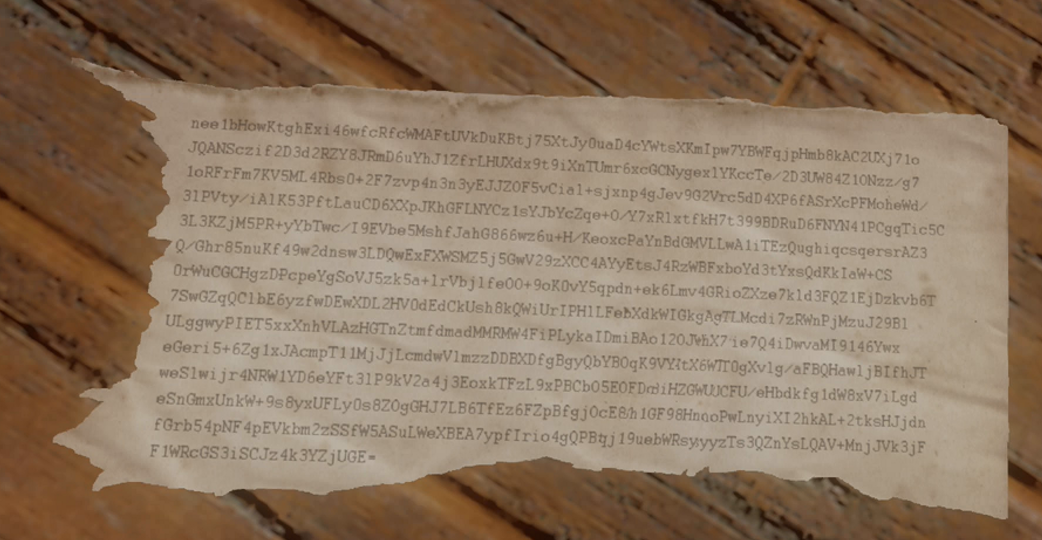 nee1bHowKtghExi46wfcRfcWMAFtUVkDuKBtj75XtJy0uaD4cYWtsXKmIpw7YBWFqjpHmb8kAC2UXj71o
JQANSczif2D3d2RZY8JRmD6uYhJ1ZfrLHUXdx9t9iXnTUmr6xcGCNygex1YKccTe/2D3UW84Z1ONzz/g7
1oRFrFm7KV5ML4Rbs0+2F7zvp4n3n3yEJJZOF5vCial+sjxnp4gJev9G2Vrc5dD4XP6fASrXcPFMoheWd/
31PVty/iA1K53PftLauCD6XXpJKhGFLNYCz1sYJbYcZqe+O/Y7xRlxtfkH7t399BDRuD6FNYN41PCgqTic5C
3L3KZjM5PR+yYbTwc/I9EVbe5MshfJahG866wz6u+H/KeoxcPaYnBdGMVLLwA1iTEzQughiqcsqersrAZ3
Q/Ghr85nuKf49w2dnsw3LDQwExFXWSMZ5j5GwV29zXCC4AYyEtsJ4RzWBFxboYd3tYxsQdKkIaW+CS
0rWuCGCHgzDPcpeYgSoVJ5zk5a+1rVbjlfeOO+9oK0vY5qpdn+ek6Lmv4GRioZXze7k1d3FQZ1EjDzkvb6T
7SwGZqQC1bE6yzfwDEwXDL2HV0dEdCkUsh8kQWiUrIPH1LFebXdkWIGkgAgTLMcdi7zRWnPjMzuJ29B1
ULggwyPIET5xxXnhVLAzHGTnZtmfdmadMMRMW4FiPLykaIDmiBAo120JWhX7ie7Q4iDwvaMI9146Ywx
eGeri5+6Zg1xJAcmpT11MjJjLcmdwVlmzzDDBXDfgBgyQbYB0qK9VYItX6WTT0gXvlg/aFBQHawljBIfhJT
weSlwijr4NRW1YD6eYFt3lP9kV2a4j3EoxkTFzL9xPBCb05E0FDrdiHZGWUJCFU/eHbdkfg1dW8xV7iLgd
eSnGmxUnkW+9s8yxUFLy0s8ZOgGHJ7LB6TfEz6FZpBfgj0cE8/h1GF98HnqoPwLnyiXI2hkAL+2tksHJjdn
fGrb54pNF4pEVkbm2zSSfW5ASuLWeXBEA7ypfIrio4gQPBtj19uebWRsyyyzTs3QZnYsLQAV+MnjJVk3jF
F1WRcGS3iSCJz4k3YZjUGE=